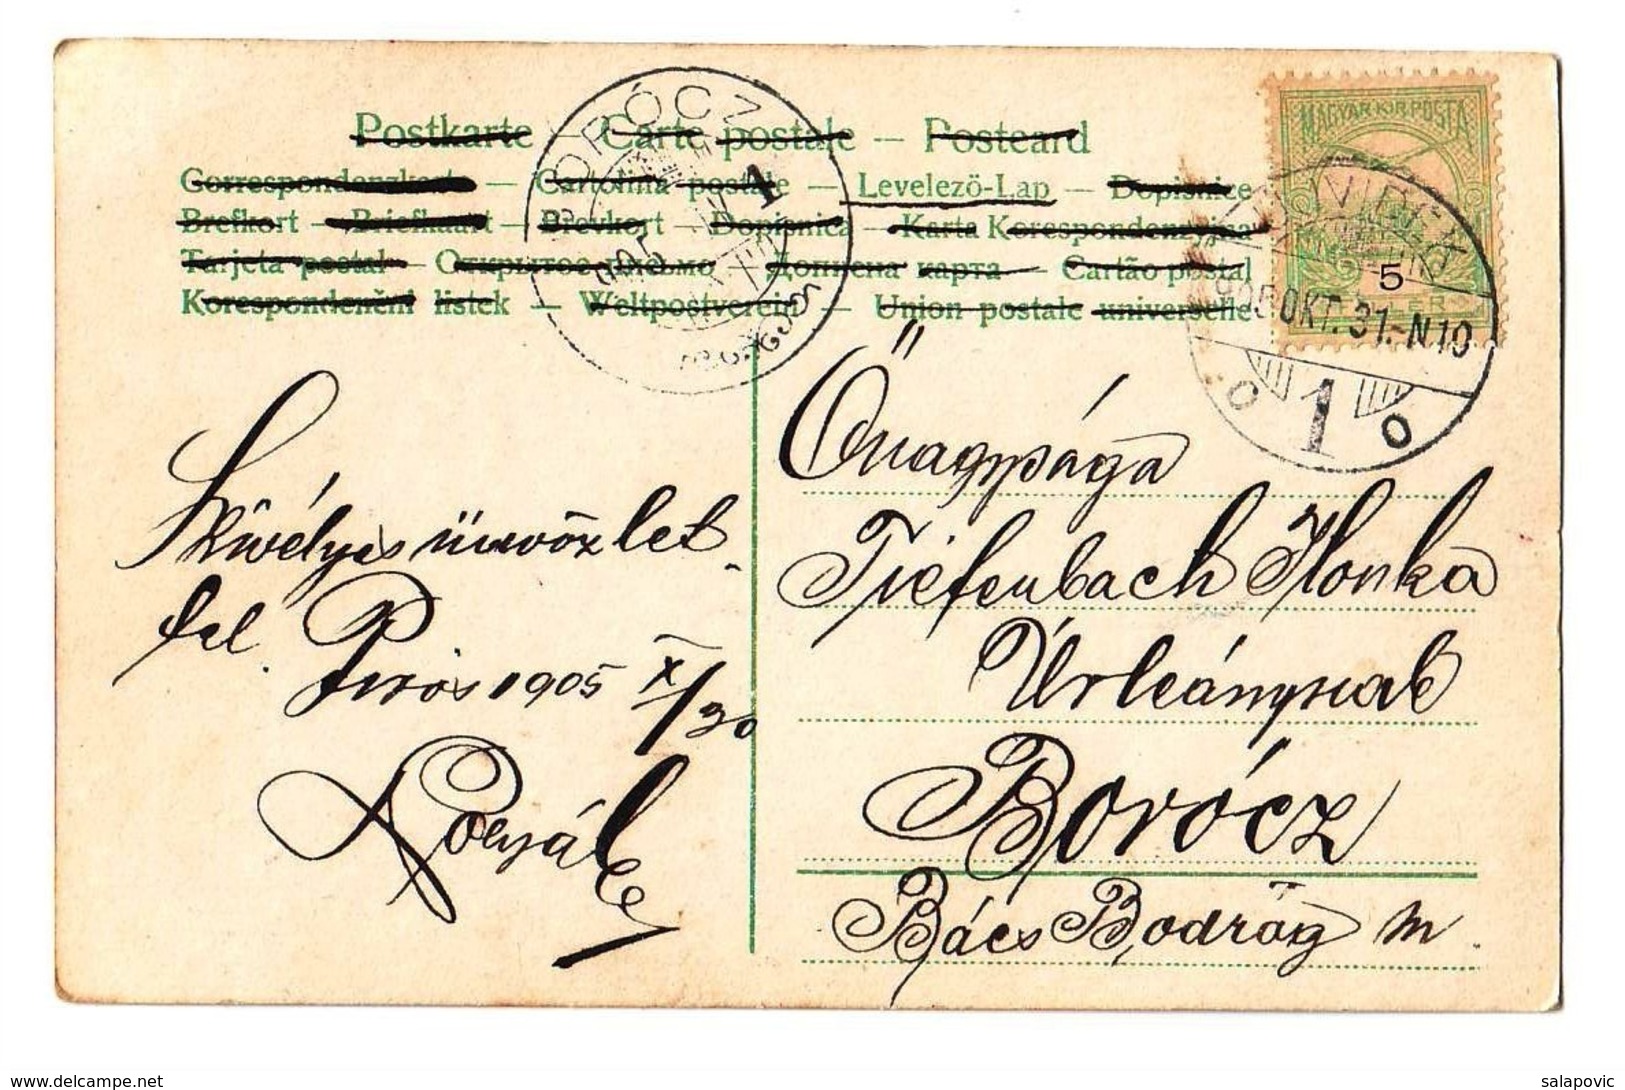 Postkarte — Carte postale — Postcard
Correspondenzkarte — Cartolina postale — Levelező-Lap — Dopisnice
Brefkort — Briefkaart — Brevkort — Dopisnica — Karta Korespondenzyjna
Tarjeta postal — Открытое письмо — Дописна карта — Cartão postal
Korespondenční listek — Weltpostverein — Union postale universelle
BORÓCZ
1
905
MAGYAR KIR. POSTA
5
ÚJVIDÉK
905 OKT. 31. N10
1
Szívélyes üdvözlet
fel.
Piros 1905 X/30
Önagysága
Tiefenbach Ilonka
Úrleánynak
Borócz
Bács Bodrog m.
delcampe.net
salapovic